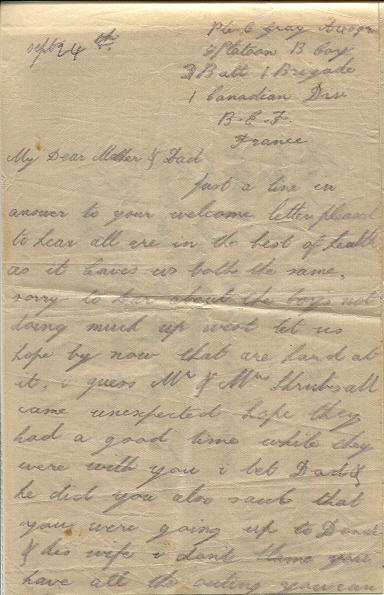 Sept 24th.
Pte C Gray
Platoon B Coy
3 Batt 1 Brigade
1 Canadian Div
B.E.F.
France
My Dear Mother & Dad
Just a line in
answer to your welcome letter pleased
to hear all are in the best of health
as it leaves us both the same,
sorry to hear about the boys not
doing much up west let us
hope by now that are hard at
it, i guess Mr & Mrs Shrubsall
came unexpected hope they
had a good time while they
were with you i bet Dad &
he did you also said that
you were going up to
& his wife i dont blame you
have all the outing you can